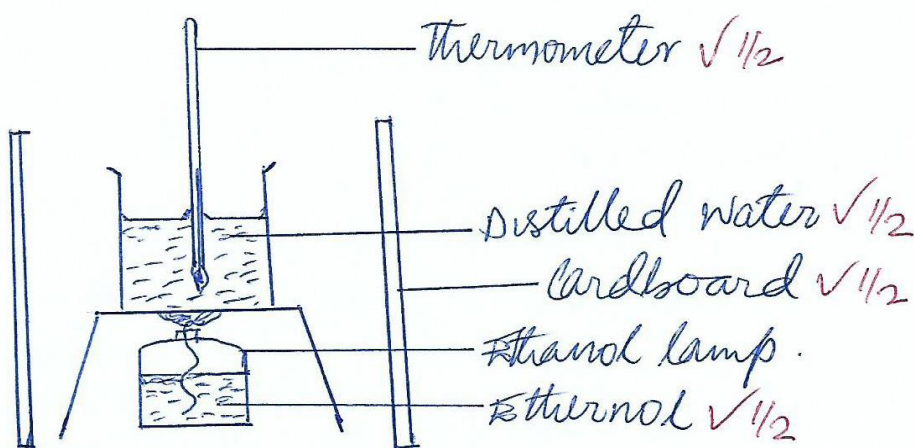 Thermometer ✓ 1/2
Distilled water ✓ 1/2
Cardboard ✓ 1/2
Ethanol lamp.
Ethernol ✓ 1/2